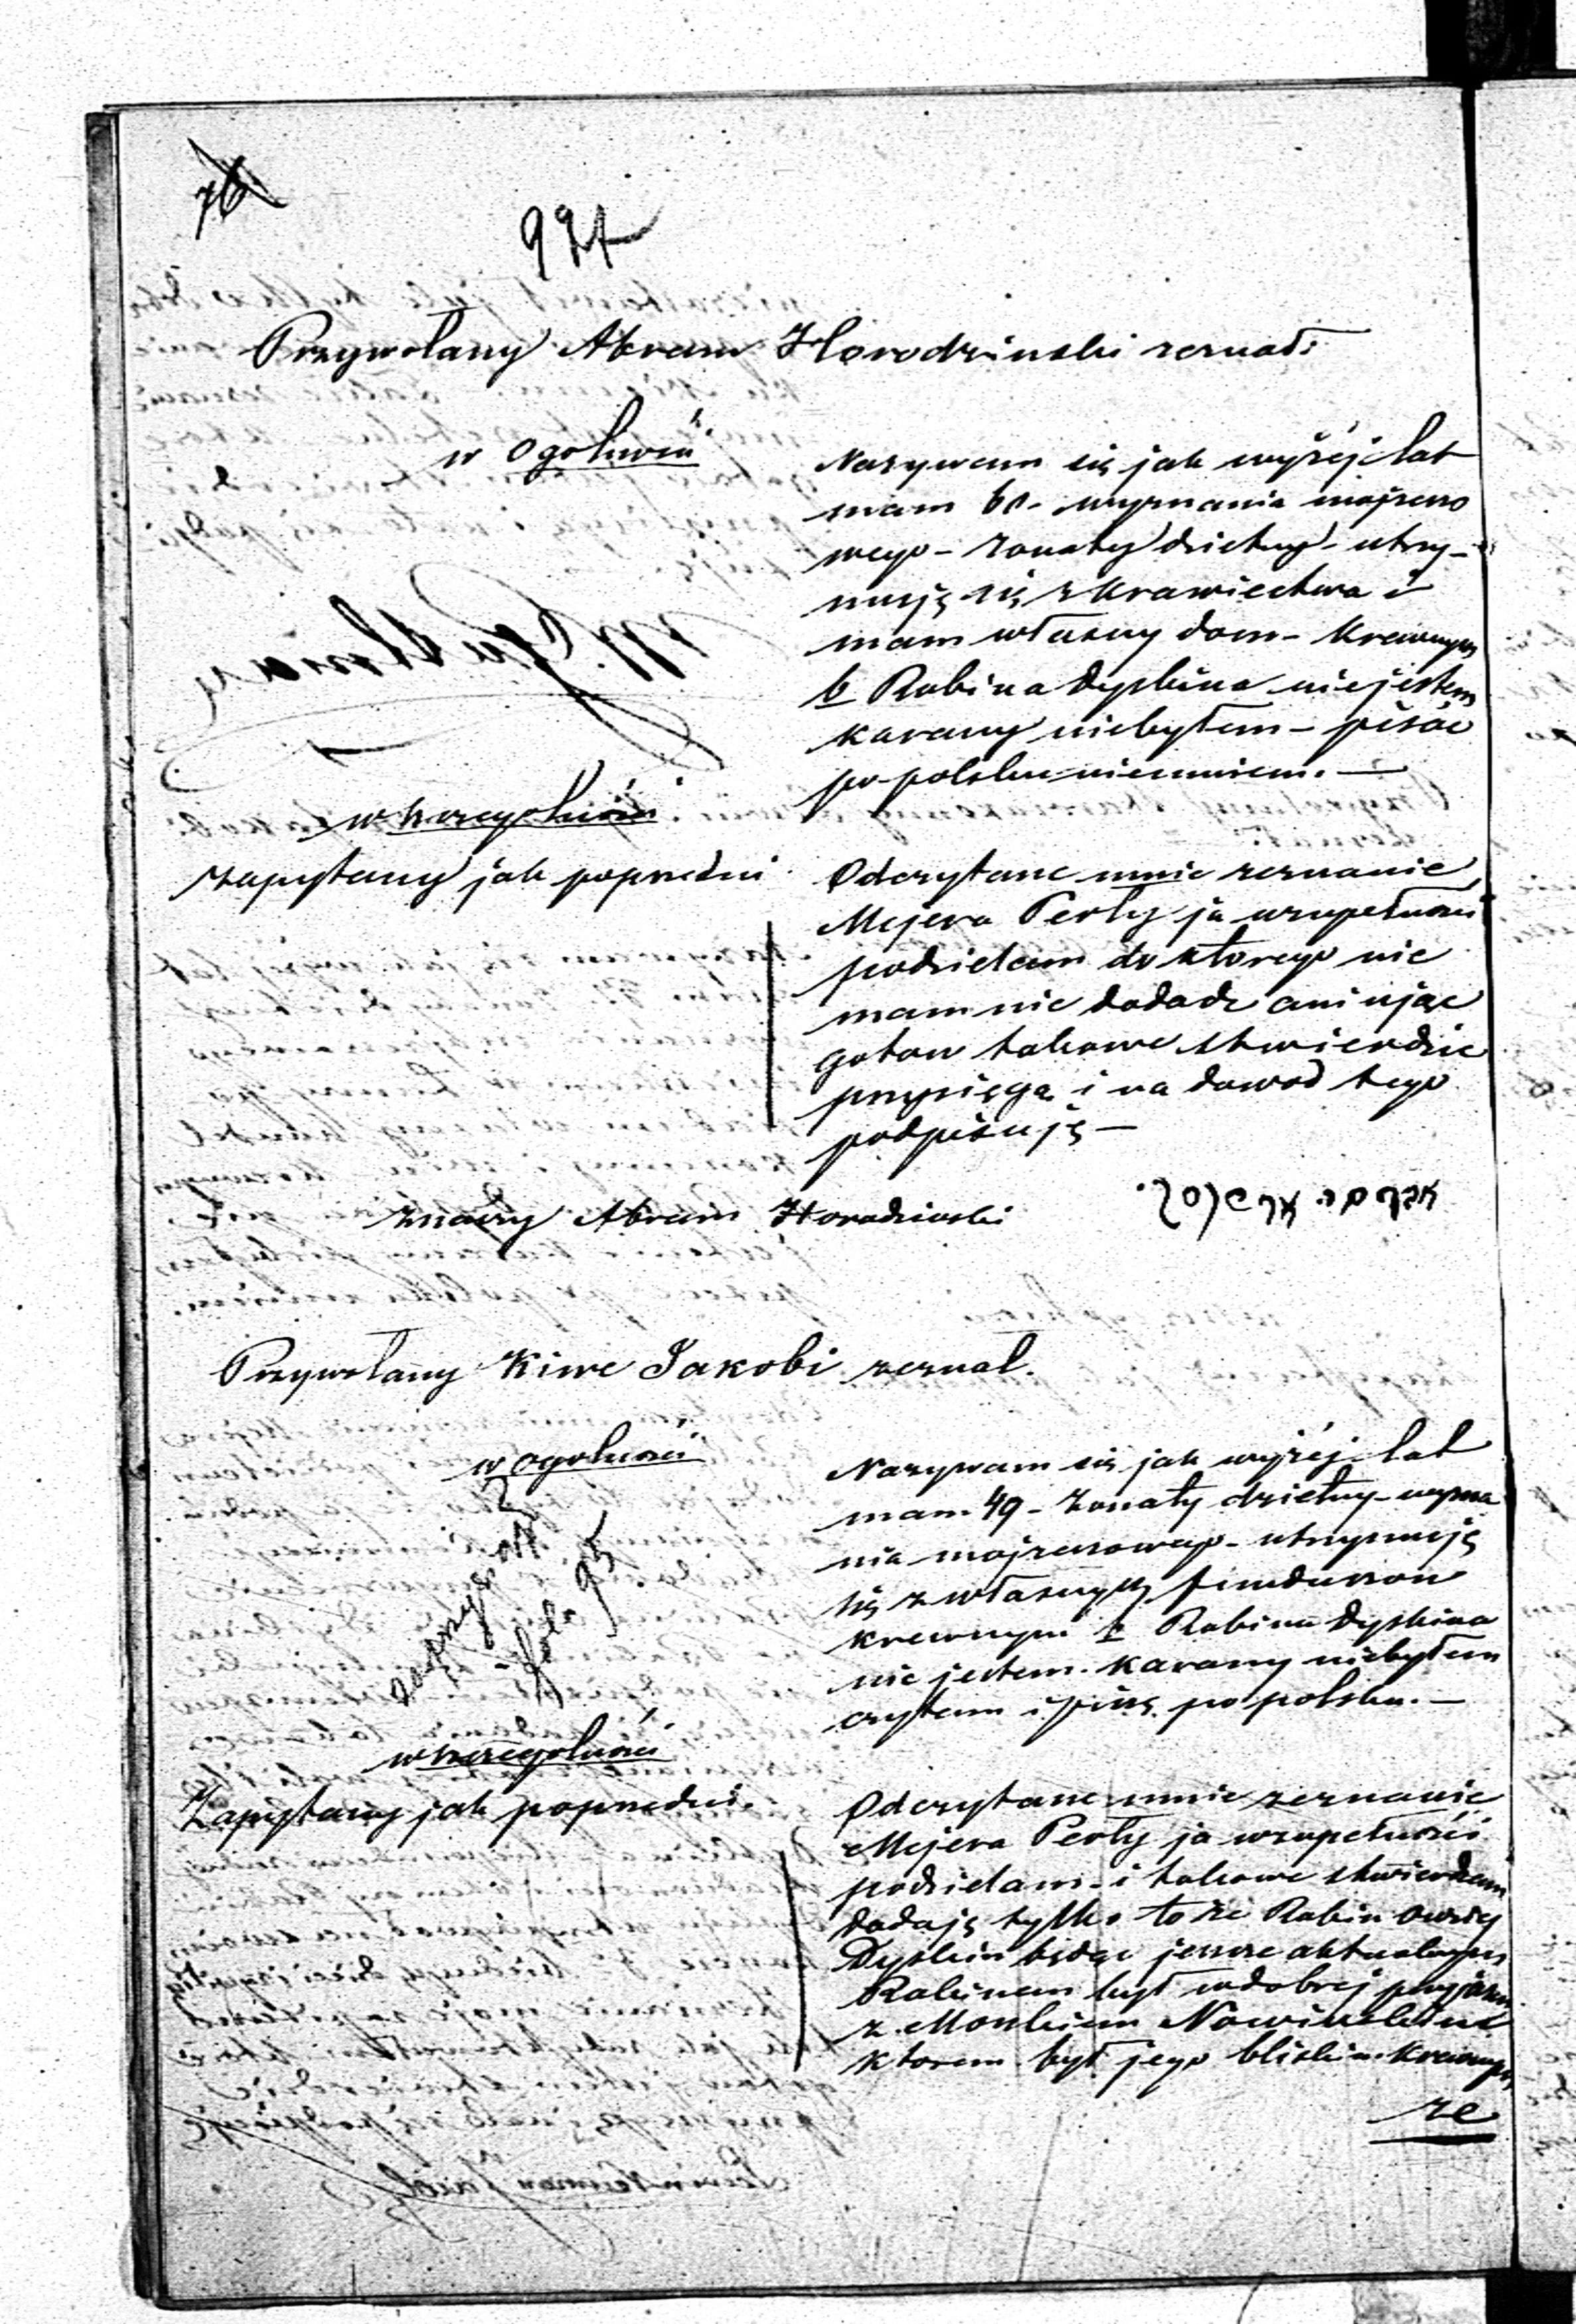 76
997
Przywołany Abram Horodzinski zeznał:
w ogolności
Nazywam się jak wyżéj lat
mam 60 - wyznania mojżeszo
wego - żonaty dzietny - utrzy-
muję się z krawiectwa i
mam własny dom - krewnym
b Rabina Dyskina niejestem
karany niebyłem - pisać
po polsku nieumiem. —
w szczegolności
Zapytany jak poprzedni
Odczytane mnie zeznanie
Mejera Perły ja wzupełności
podzielam do ktorego nie
mam nic dodadz ani ująć
gotow takowe stwierdzić
przysięgą i na dowod tego
podpisuję —
znaczy Abram Horodzinski
Przywołany Kiwe Jakobi zeznal.
w ogolności
Nazywam się jak wyżéj lat
mam 49 - żonaty dzietny - wyzna
nia mojzeszowego - utrzymuję
się z własnych funduszow
krewnym b Rabina Dyskina
nie jestem. karany niebyłem
czytam i piszę po polsku. —
w szczegolności
Zapytany jak poprzedni.
Odczytane mnie zeznanie
Mejera Perły ja wzupełności
podzielam - i takowe stwierdzam
dodaję tylko to że Rabin
Dyskin będąc jeszcze aktualnym
Rabinem był w dobrej przyjazni
z Moskiem
ktorem był jego bliskim krewnym
że